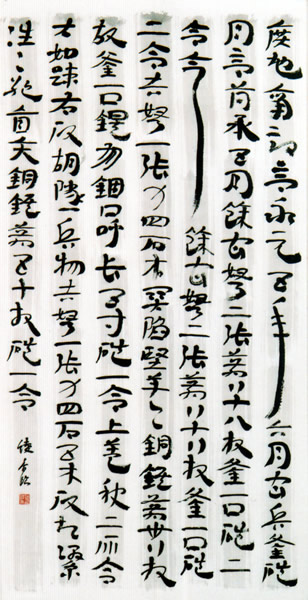 廣地南部言永元五年六月官兵釜磑
月言簿承五月餘官弩二張箭八十八枚釜一口磑二
合今餘官弩二張箭八十八枚釜一口磑
二合赤弩一張力四石木關陷堅羊頭銅鍭箭卅八枚
故釜一口鍉有錮口呼長五寸磑一合上蓋缺二所各
大如踈右破胡隧兵物赤弩一張力四石五木破起繳
往〻絕盲矢銅鍭箭五十枚磑一合